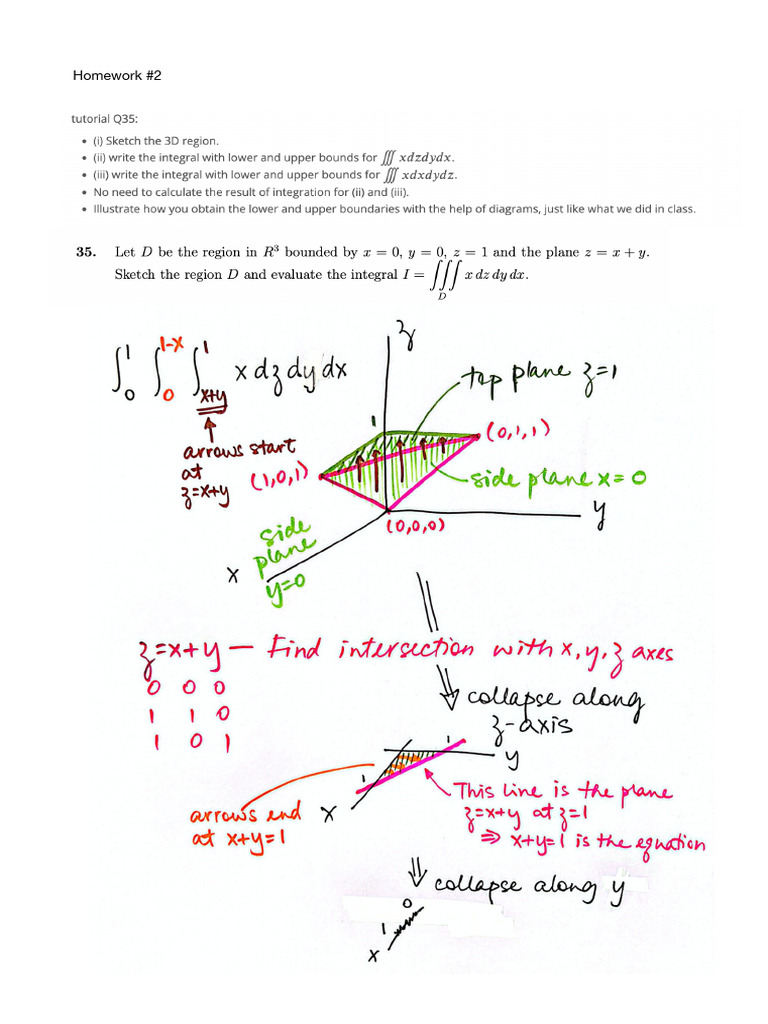 Homework #2
tutorial Q35:
• (i) Sketch the 3D region.
• (ii) write the integral with lower and upper bounds for ∭ xdzdydx.
• (iii) write the integral with lower and upper bounds for ∭ xdxdydz.
• No need to calculate the result of integration for (ii) and (iii).
• Illustrate how you obtain the lower and upper boundaries with the help of diagrams, just like what we did in class.
35. Let D be the region in R³ bounded by x = 0, y = 0, z = 1 and the plane z = x + y.
Sketch the region D and evaluate the integral I = ∭_D x dz dy dx.
∫_0^1 ∫_0^{1-x} ∫_{x+y}^1 x dz dy dx
z
top plane z=1
1
(0,1,1)
arrows start
at
z=x+y
(1,0,1)
side plane x=0
(0,0,0)
y
side
plane
y=0
x
z=x+y — Find intersection with x, y, z axes
0 0 0
1 1 0
1 0 1
collapse along
z-axis
1
y
1
x
arrows end
at x+y=1
This line is the plane
z=x+y at z=1
⇒ x+y=1 is the equation
collapse along y
0
1
x